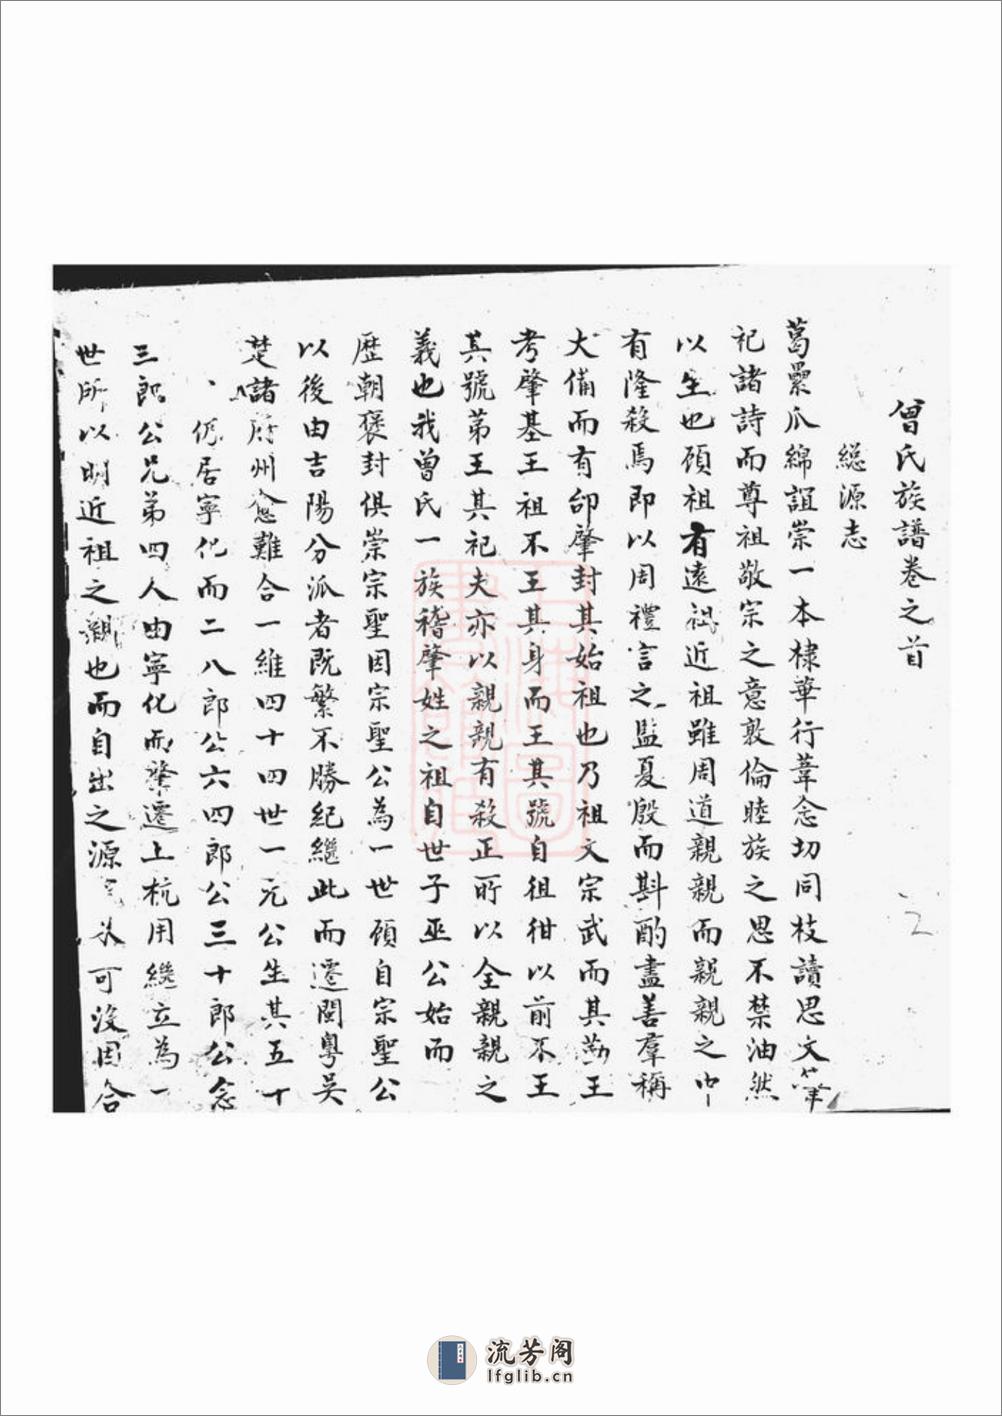 曾氏族譜卷之首
總源志
葛纍瓜綿誼崇一本棣華行葦念切同枝讀思文
祀諸詩而尊祖敬宗之意敦倫睦族之思不禁油然
以生也顧祖有遠祖近祖雖周道親親而親親之中
有隆殺焉即以周禮言之監夏殷而斟酌盡善羣稱
大備而有邰肇封其始祖也乃祖文宗武而其勤王
考肇基王祖不王其身而王其號自祖紺以前不王
其號第王其祀夫亦以親親有殺正所以全親親之
義也我曾氏一族稽肇姓之祖自世子巫公始而
歷朝褒封俱崇宗聖因宗聖公為一世顧自宗聖公
以後由吉陽分派者既繁不勝紀繼此而遷閩粵吳
楚諸府州愈難合一維四十四世一元公生其五十
仍居寧化而二八郎公六四郎公三十郎公念
三郎公兄弟四人由寧化而肇遷上杭用繼立為一
世所以明近祖之親也而自出之源 可沒因合
2
流芳阁
lfglib.cn